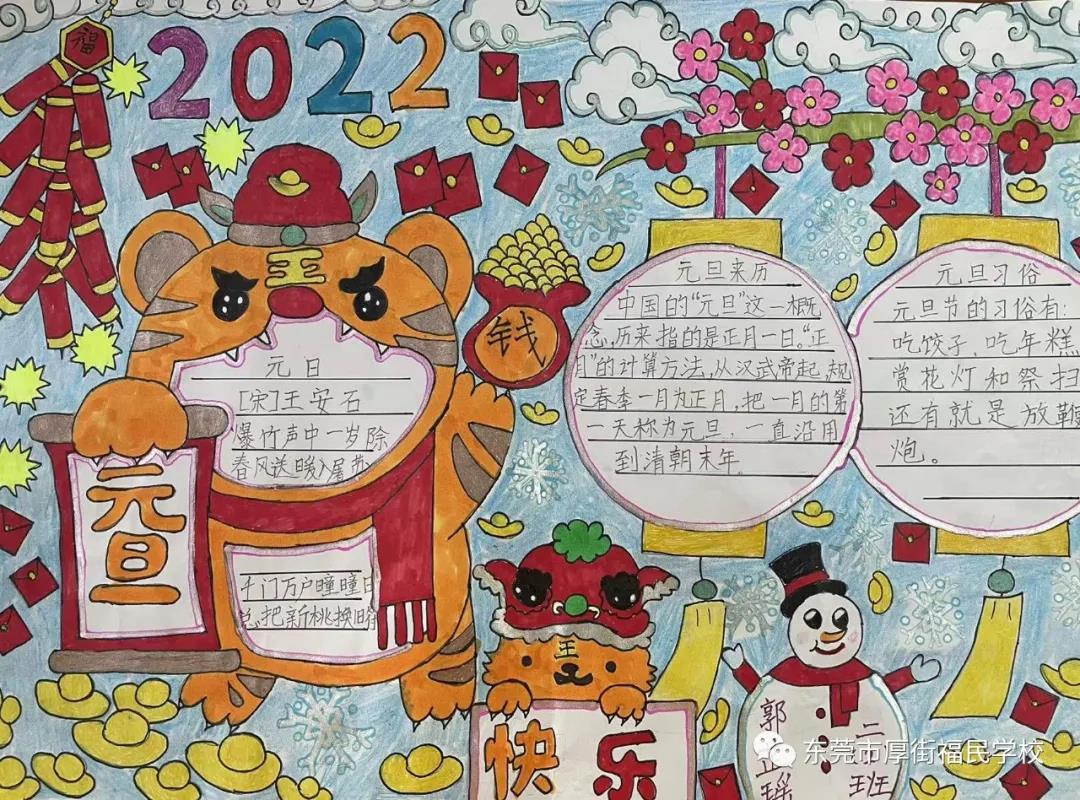 福
2022
元旦
元日
[宋]王安石
爆竹声中一岁除
春风送暖入屠苏
千门万户曈曈日
总把新桃换旧符
王
钱
元旦来历
中国的“元旦”这一概
念,历来指的是正月一日。“正
月”的计算方法,从汉武帝起,规
定春季一月为正月,把一月的第
一天称为元旦,一直沿用
到清朝末年。
元旦习俗
元旦节的习俗有:
吃饺子、吃年糕
赏花灯和祭扫
还有就是放鞭
炮。
王
快乐
郭
瑶
二
班
东莞市厚街福民学校